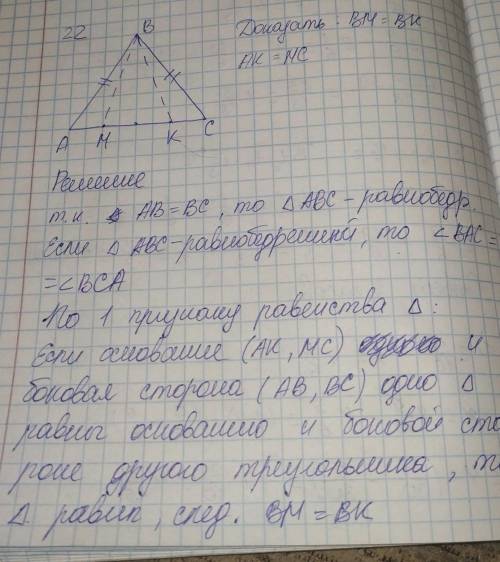 22
B
A M K C
Доказать: BM = BK
AK = MC
Решение
т.к. AB = BC, то △ ABC - равнобедр.
Если △ ABC - равнобедренный, то ∠BAC =
= ∠BCA
По 1 признаку равенства △:
Если основание (AK, MC) и
боковая сторона (AB, BC) одно △
равны основанию и боковой сто
роне другого треугольника, т
△ равны, след. BM = BK